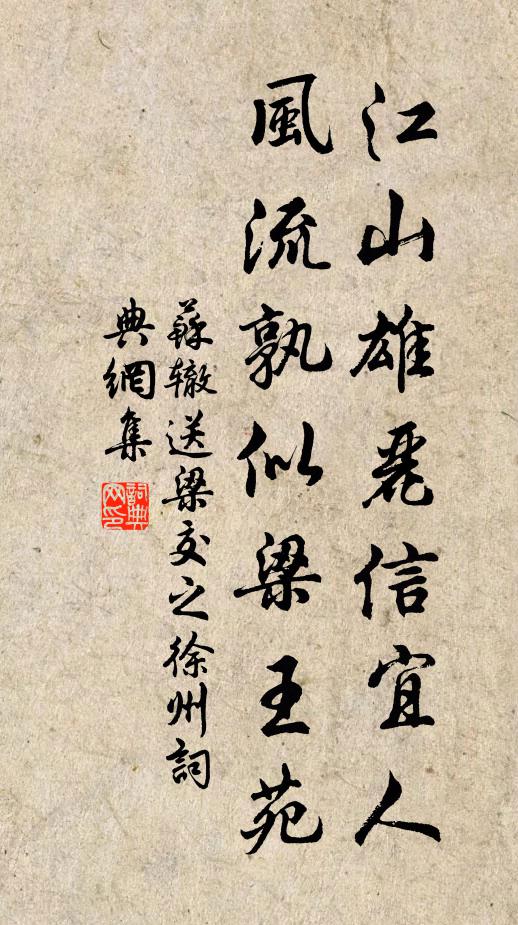 江山雄麗信宜人
風流孰似梁王苑
蘇轍送梁交之徐州詞
典網集
詞典
网印